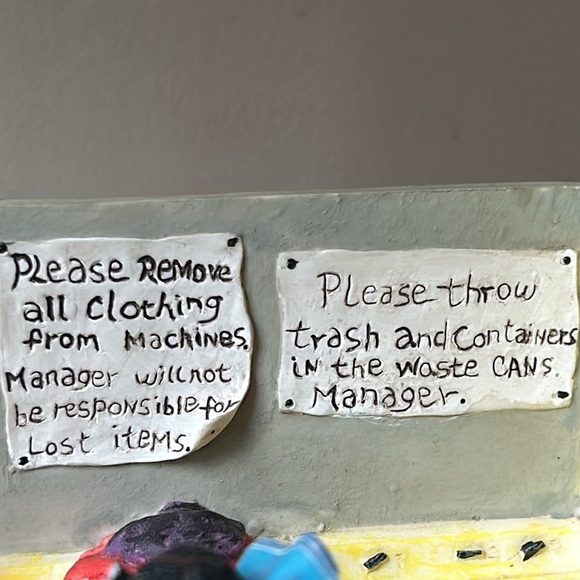 PLease ReMove
all Clothing
from Machines.
Manager will not
be responsible for
Lost iteMs.
PLease throw
trash and Containers
iN the Waste CANS.
Manager.